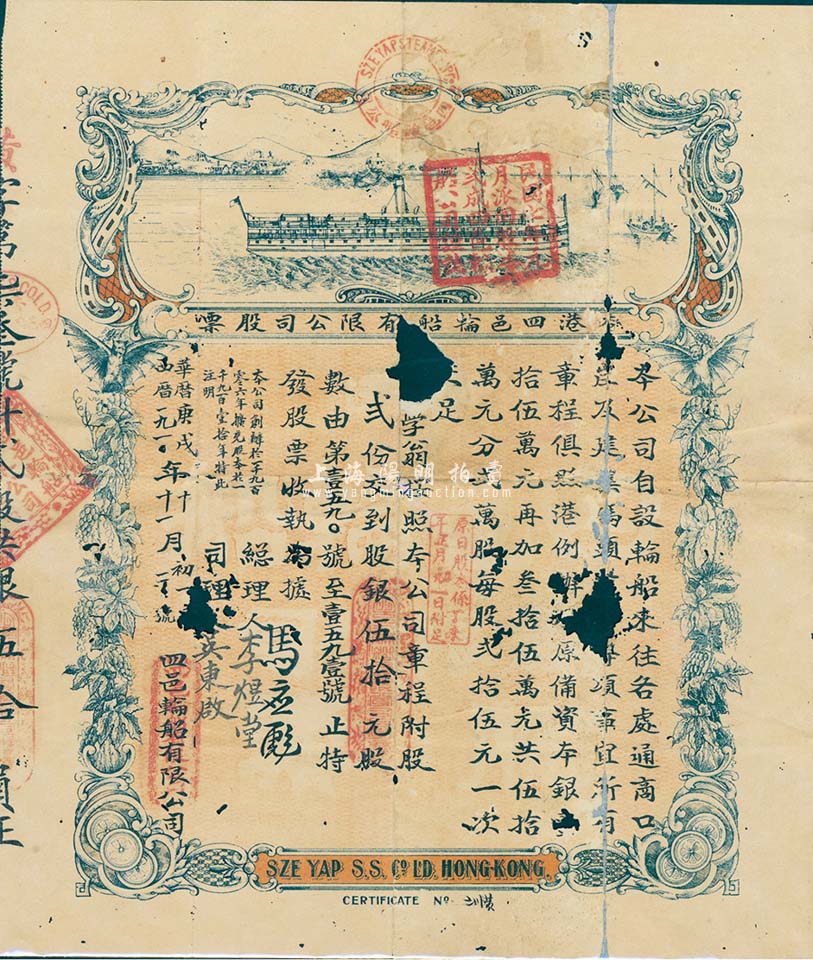 SZE YAP STEAM
香港四邑輪船有限公司股票
本公司自設輪船來往各處通商口
岸及建築碼頭 項事宜所有
章程俱照港例辦 原備資本銀
拾伍萬元再加叁拾伍萬元共伍拾
萬元分弍萬股每股弍拾伍元一次
交足
学翁 照本公司章程附股
弍份交到股銀伍拾元股
數由第壹五九〇號至壹五九壹號止特
發股票收執為據
總理人
馬應彪
李煜堂
司理
英東啟
本公司創辦於一千九百
零六年擴充股本於一
千九百壹拾年特此
注明
華曆庚戌年十一月初一
西曆一九一〇年十二 號
四邑輪船有限公司
原日股本係丁未
年正月初一日附足
字第 叁號計弍股共銀伍拾 員正
上海陽明拍賣
www.yangmingauction.com
SZE YAP S.S. Co. L'D. HONG-KONG.
CERTIFICATE No.